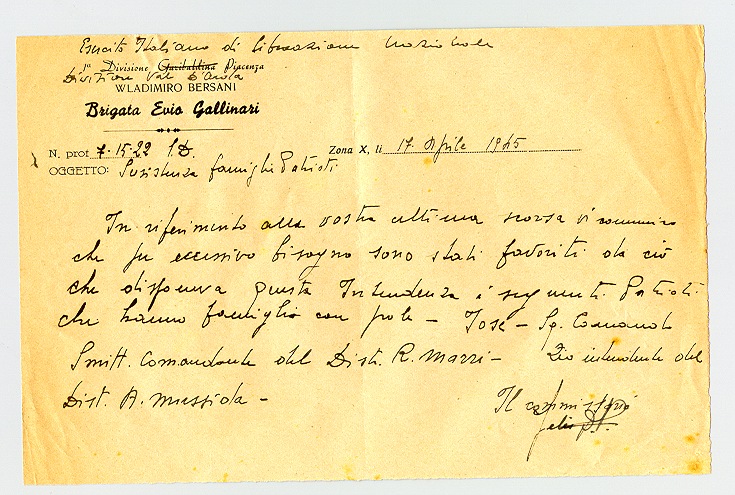 Esercito Italiano di liberazione nazionale
1a Divisione Garibaldina Piacenza
Divizione Val D'Arda
WLADIMIRO BERSANI
Brigata Evio Gallinari
N. prot. 7-15-22 I.D. Zona X, li 17 Aprile 1945
OGGETTO: Susistenza famiglie Patrioti
In riferimento alla vostra ultima scorsa vi comunico
che per eccessivo bisogno sono stati favoriti da ciò
che disponeva questa Intendenza i seguenti Patrioti
che hanno famiglia con prole - Jose -
Smitt. Comandante del Dist. R. Marzi - Zio intendente del
Dist. A. Mussida -
Il